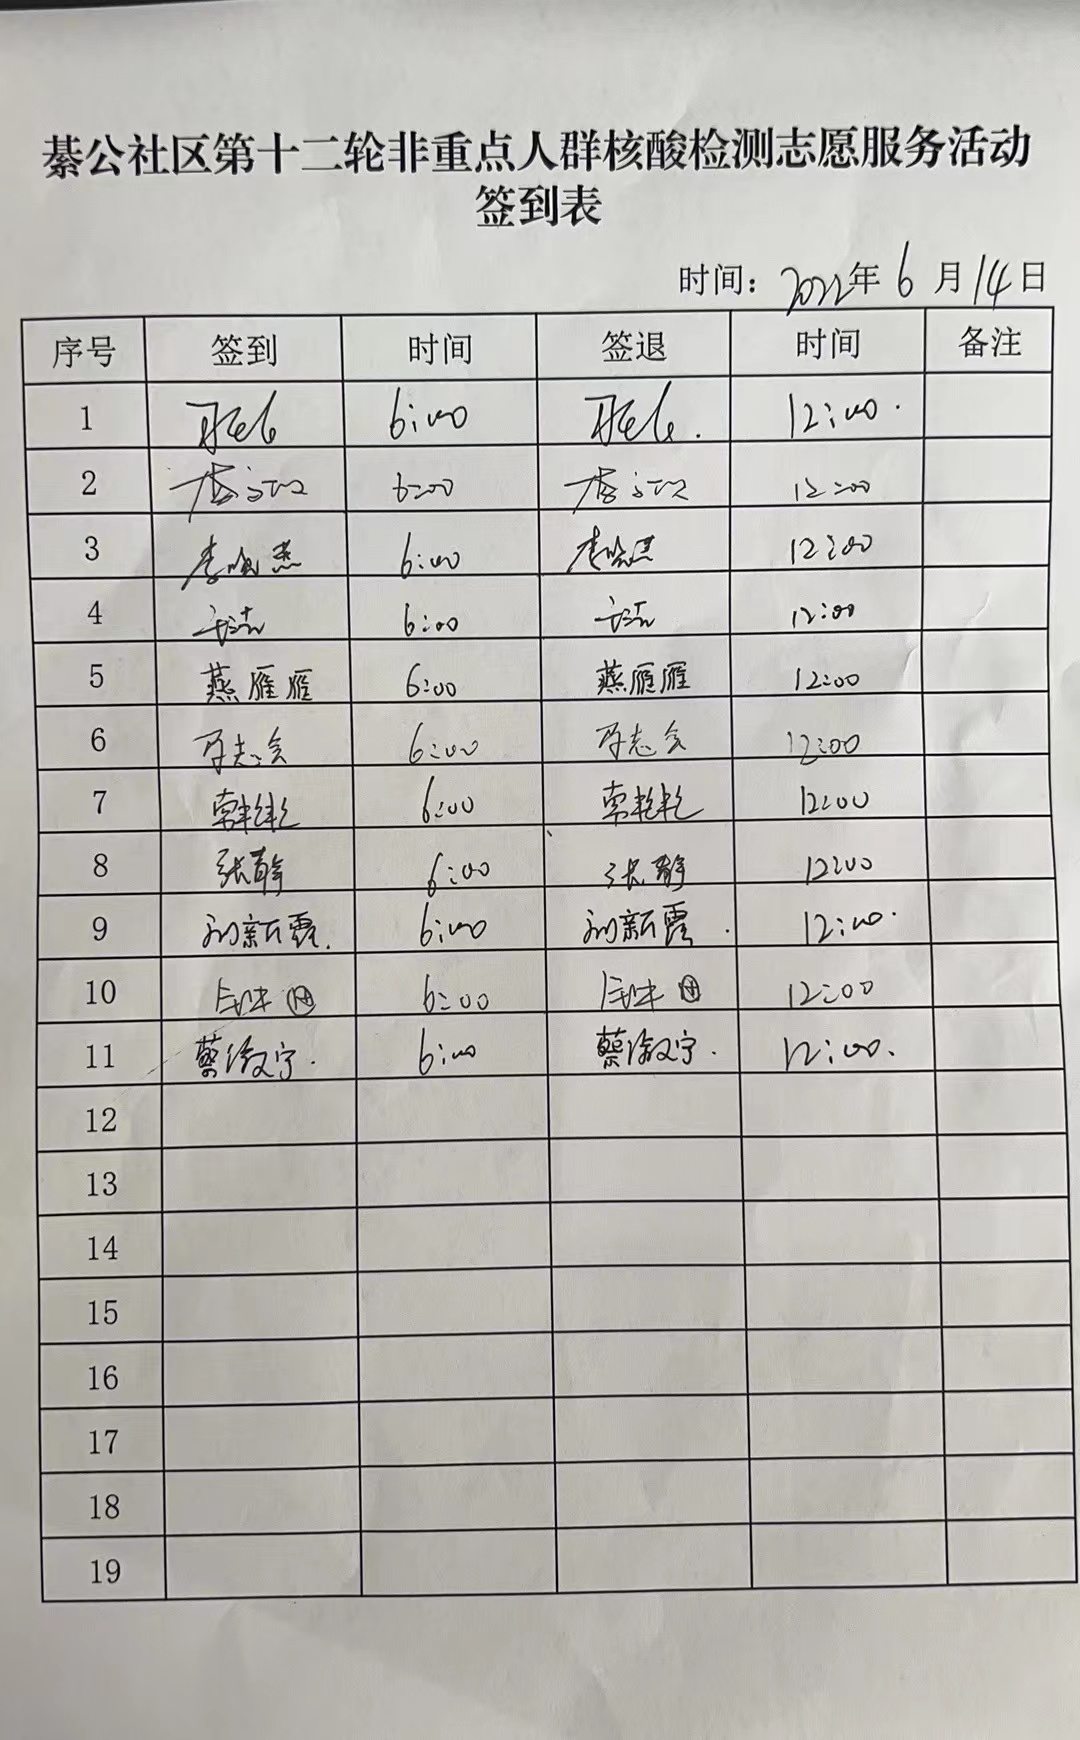 綦公社区第十二轮非重点人群核酸检测志愿服务活动
签到表
时间：2022年 6 月 14 日
序号 签到 时间 签退 时间 备注
1 6:00 12:00
2 6:00 12:00
3 6:00 12:00
4 6:00 12:00
5 燕雁雁 6:00 燕雁雁 12:00
6 志会 6:00 志会 12:00
7 6:00 12:00
8 张静 6:00 张静 12:00
9 刘新霞 6:00 刘新霞 12:00
10 6:00 12:00
11 蔡 宁 6:00 蔡 宁 12:00
12
13
14
15
16
17
18
19